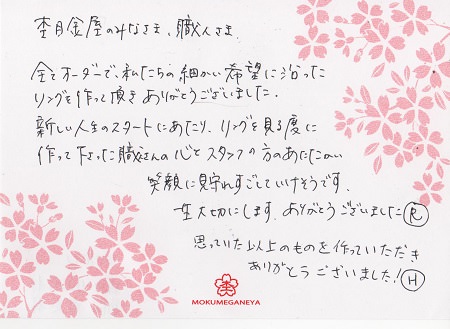 杢目金屋のみなさま、職人さま
全てオーダーで、私たちの細かい希望に沿った
リングを作って頂きありがとうございました。
新しい人生のスタートにあたり、リングを見る度に
作って下さった職人さんの心とスタッフの方のあたたかい
笑顔に見守れすごしていけそうです。
一生大切にします。ありがとうございました Ⓡ
思っていた以上のものを作っていただき
ありがとうございました! Ⓗ
MOKUMEGANEYA